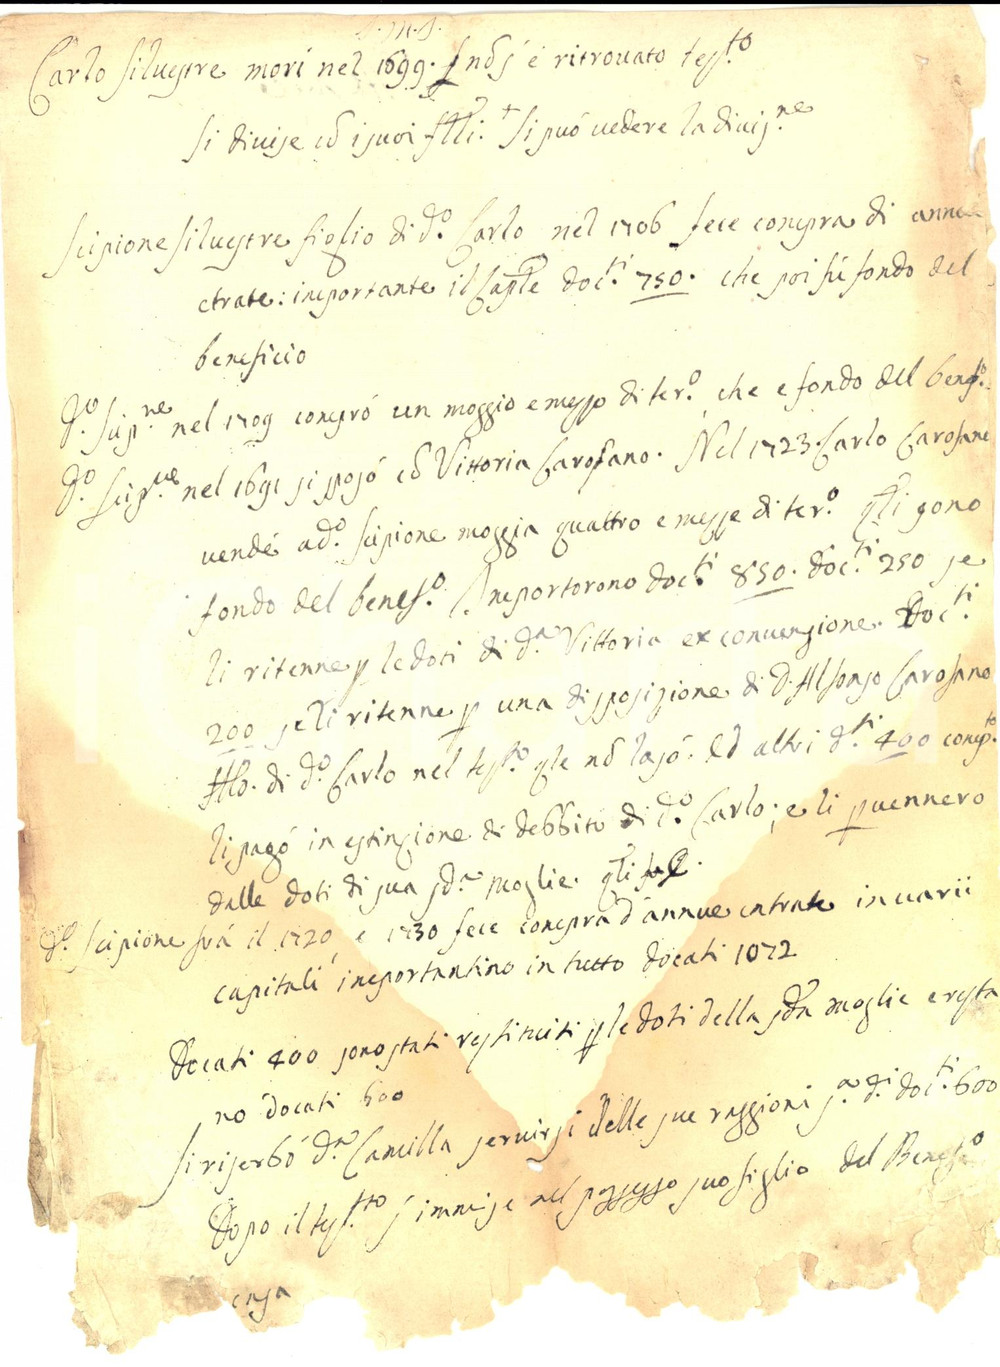 J.M.J.
Carlo Silvestre morì nel 1699. nõ s'è ritrovato tes.to
Si divise cõ i suoi f̃lli. Si può vedere la divis.ne
Scipione Silvestre figlio di d.o Carlo nel 1706 fece compra di annue
etrate: importante il Cap̃le doc.ti 750. che poi fù fondo del
beneficio
d.o Scip.ne nel 1709 comprò un moggio e mezzo di ter.o che e fondo del benef.o
d.o Scip.ne nel 1691 si sposò cõ Vittoria Carofano. Nel 1723. Carlo Carofano
vendè a d.o Scipione moggia quattro e mezze di ter.o q̃li sono
fondo del benef.o Importorono doc.ti 850. doc.ti 250 se
li ritenne p le doti di d.a Vittoria ex convenzione. Doc.ti
200 se li ritenne p una disposizione di D. Alfonso Carofano
di d.o Carlo nel tes.to q̃le nõ lasò. Ed altri d.ti 400 comp.to
li pagò in estinzione di debbito di d.o Carlo; e li pvennero
dalle doti di sua sd.a moglie. q̃li
d.o Scipione frà il 1720 e 1730 fece compra d'annue entrate in varii
capitali importantino in tutto docati 1072
Docati 400 sono stati restituiti p le doti della sd̃a moglie e resta
no docati 600
Si riserbò d.a Camilla servirsi delle sue raggioni s.a d.i doc.ti 600
Dopo il tes.tto s'immise nel possesso suo figlio del Benef.o